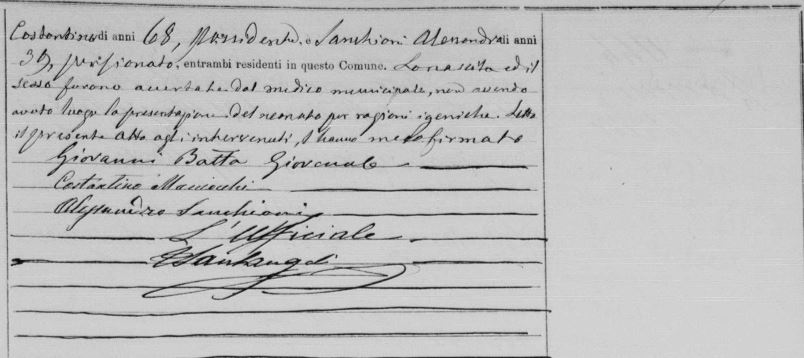 Costantino di anni 68, possidente, e Sanchioni Alessandro di anni
39, pensionato, entrambi residenti in questo Comune. La nascita ed il
sesso furono accertate dal medico municipale, non avendo
avuto luogo la presentazione del neonato per ragioni igieniche. Letto
il presente atto agli intervenuti, l'hanno meco firmato
Giovanni Batta Giovenale
Costantino Maciocchi
Alessandro Sanchioni
L'Ufficiale